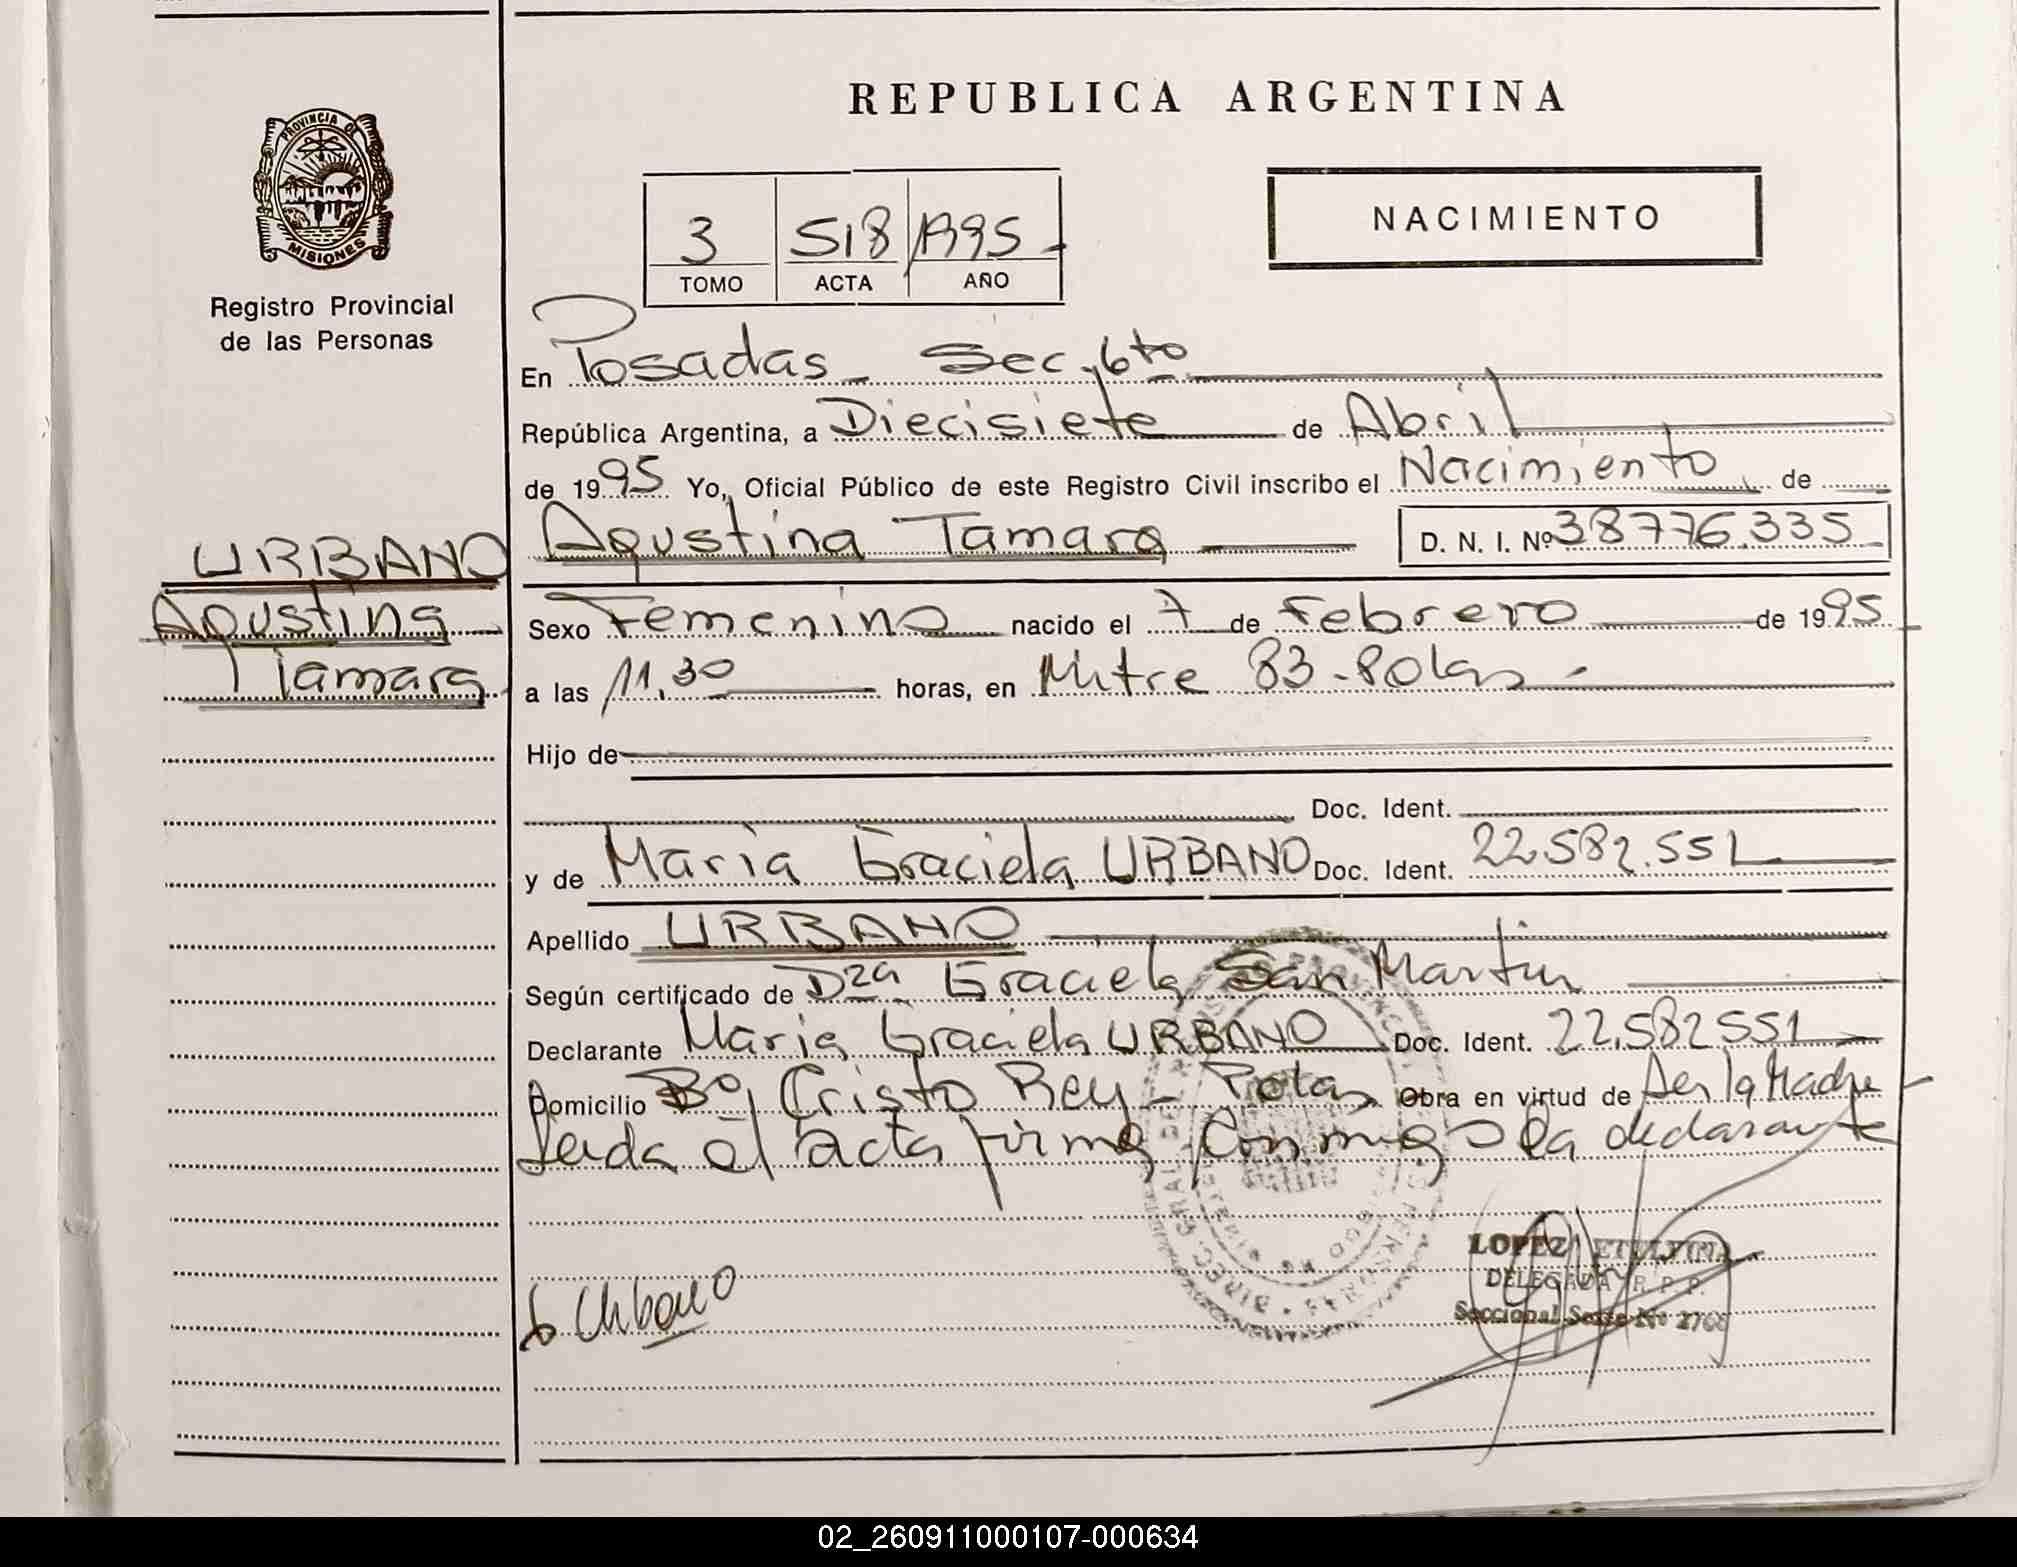 REPUBLICA ARGENTINA
PROVINCIA DE
MISIONES
Registro Provincial
de las Personas
NACIMIENTO
3 518 1995
TOMO ACTA AÑO
En Posadas - Sec. 6to
República Argentina, a Diecisiete de Abril
de 1995 Yo, Oficial Público de este Registro Civil inscribo el Nacimiento de
URBANO Agustina Tamara D. N. I. Nº 38776.335
Agustina Sexo Femenino nacido el 7 de Febrero de 1995
Tamara a las 11,30 horas, en Mitre 83 - Pdas -
Hijo de
Doc. Ident.
y de María Graciela URBANO Doc. Ident. 22.582.551
Apellido URBANO
Según certificado de Dra Graciela San Martin
Declarante Maria Graciela URBANO Doc. Ident. 22.582551
Domicilio Bº Cristo Rey - Pdas Obra en virtud de ser la Madre
Leida el acta firma conmigo la declarante
LOPEZ ETELVINA
DELEGADA R. P. P.
Seccional Sexta Nº
Urbano
02_260911000107-000634